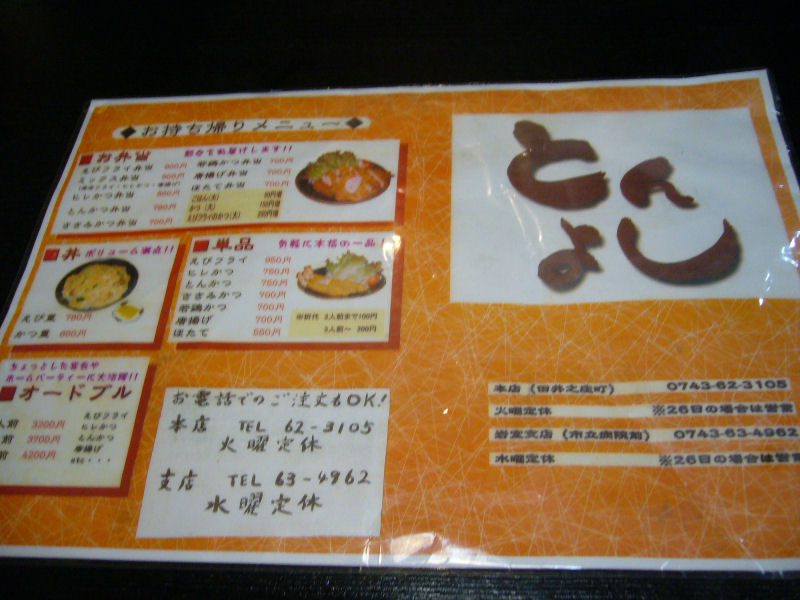 お持ち帰りメニュー
お弁当
えびフライ弁当
ミックス弁当
ヒレかつ弁当
とんかつ弁当 780円
ささみかつ弁当 700円
若鶏かつ弁当 700円
唐揚げ弁当 700円
ほたて弁当 700円
ごはん(大)
かつ(大)
えびフライのかつ(大)
丼 ボリューム満点!!
えび重 780円
かつ重 600円
単品 気軽に本格の一品!
えびフライ 950円
ヒレかつ 750円
とんかつ 750円
ささみかつ 700円
若鶏かつ 700円
唐揚げ 700円
ほたて 550円
3人前まで100円
3人前〜 200円
ちょっとした宴会や
ホームパーティーに大活躍!!
オードブル
人前 3200円
前 3700円
前 4200円
えびフライ
ヒレかつ
とんかつ
唐揚げ
etc・・・
お電話でのご注文もOK!
本店 TEL 62-3105
火曜定休
支店 TEL 63-4962
水曜定休
とん
よし
本店(田井之庄町) 0743-62-3105
火曜定休 ※26日の場合は営業
岩室支店(市立病院前) 0743-63-4962
水曜定休 ※26日の場合は営業